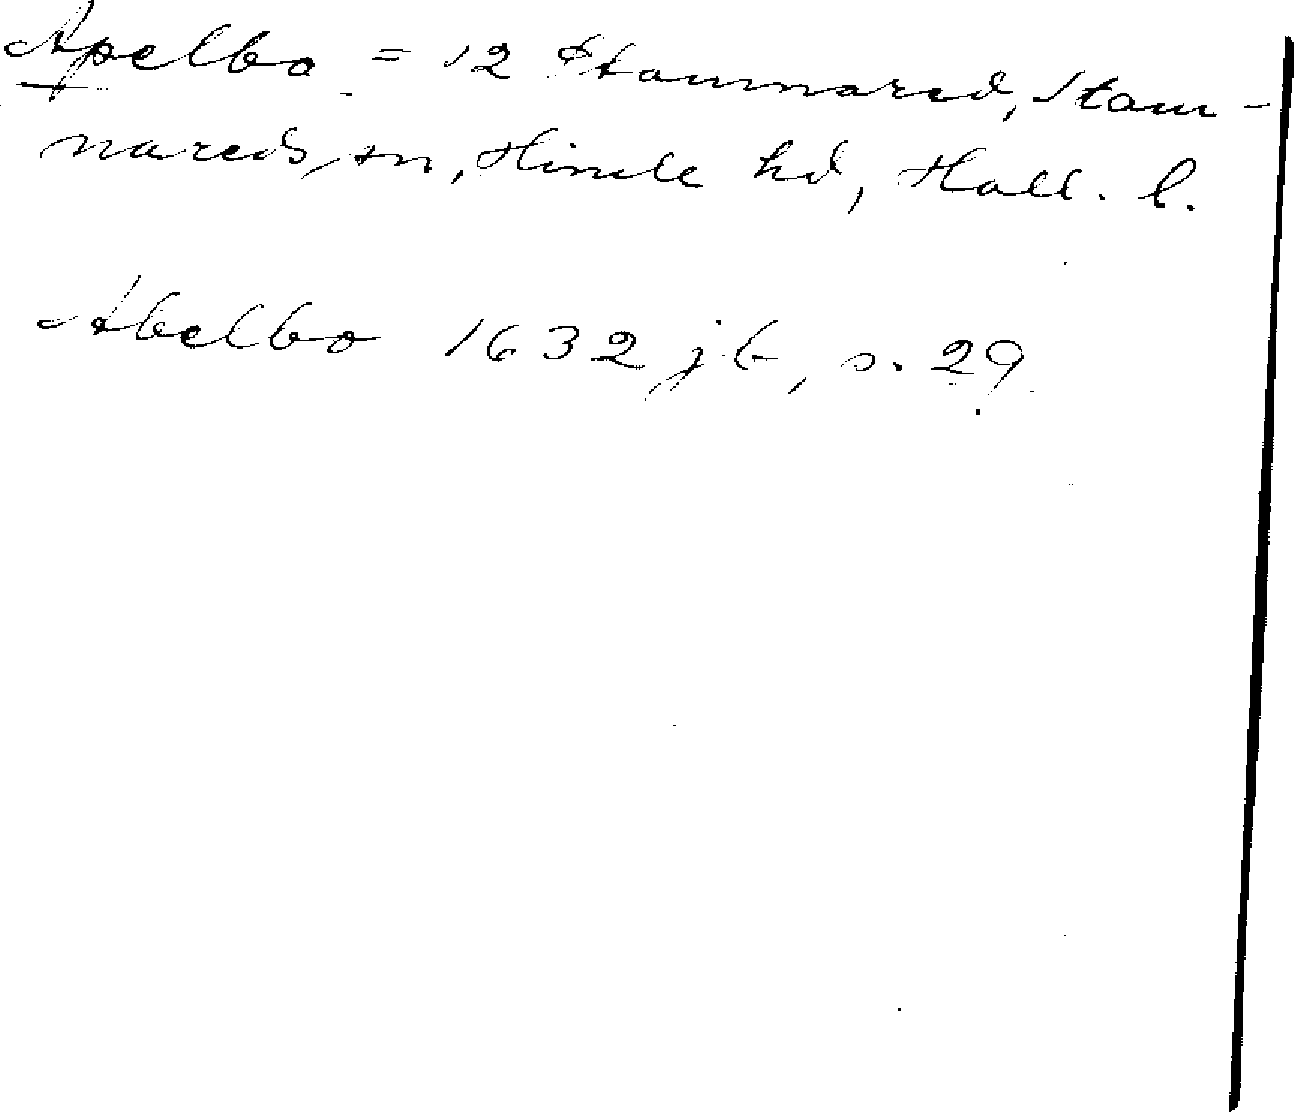 Apelbo = 12 Stamnared, Stam-
nareds sn, Himle hd, Hall. l.
Abelbo 1632 jb, s. 29